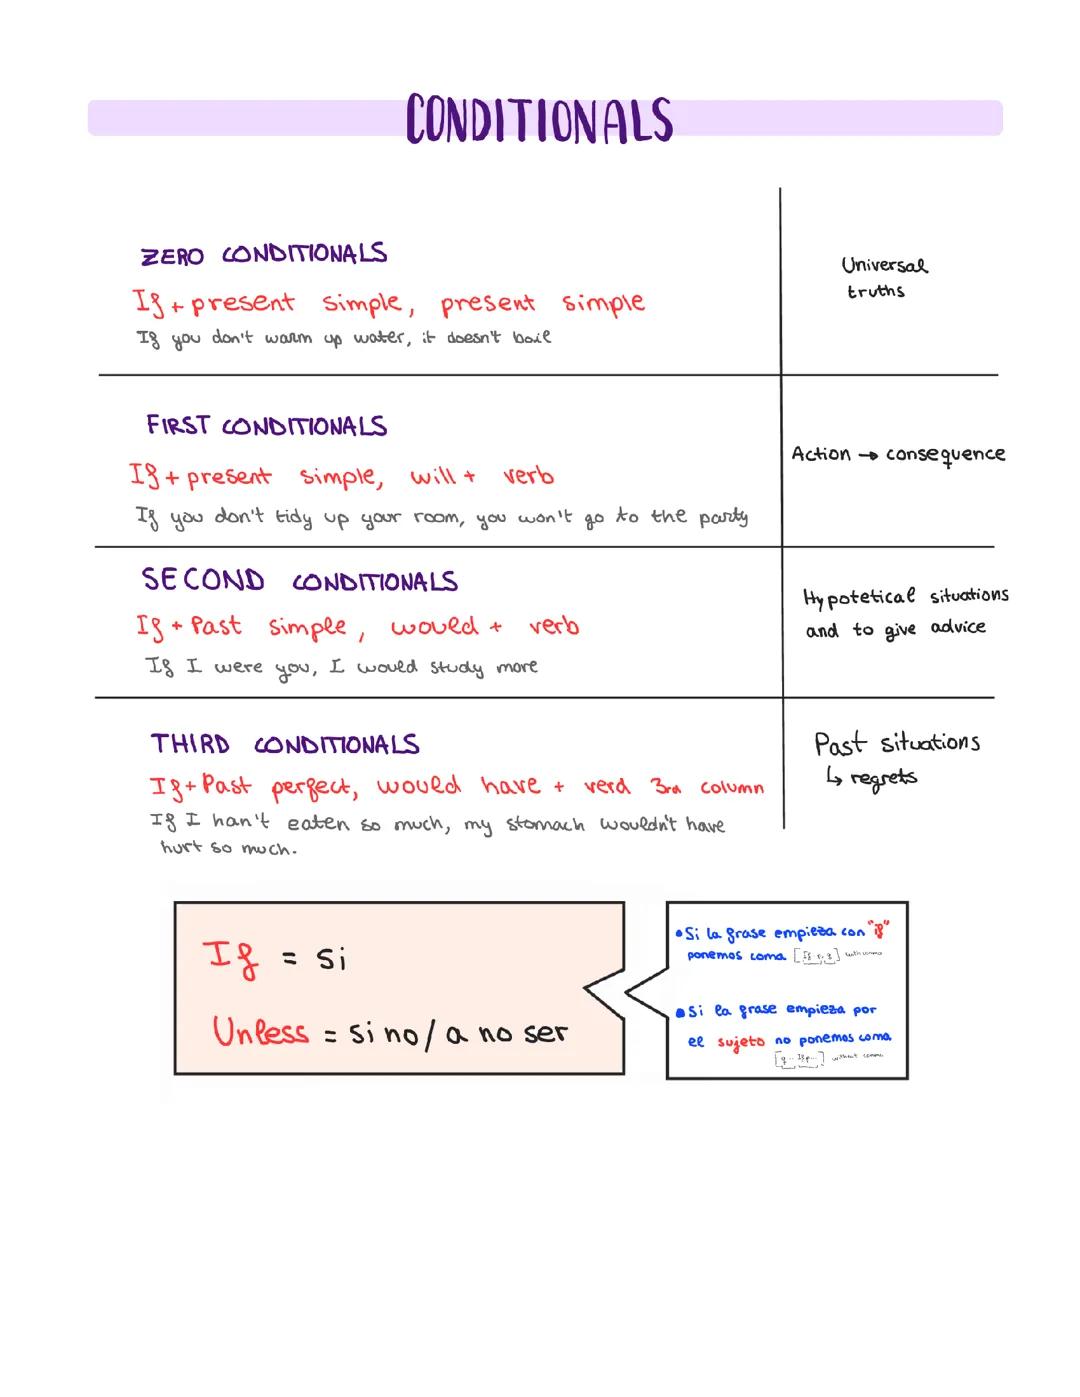 CONDITIONALS
ZERO CONDITIONALS
If + present simple, present simple
If you don't warm up water, it doesn't boil
Universal
truths
FIRST CONDITIONALS
If + present simple, will + verb
If you don't tidy up your room, you won't go to the party
Action → consequence
SECOND CONDITIONALS
If + Past simple, would + verb
If I were you, I would study more
Hypotetical situations
and to give advice
THIRD CONDITIONALS
If + Past perfect, would have + verd 3rd column
If I han't eaten so much, my stomach wouldn't have
hurt so much.
Past situations
↳ regrets
If = si
Unless = si no / a no ser
• Si la frase empieza con "if"
ponemos coma [If with comma
• Si la frase empieza por
el sujeto no ponemos coma
without comma